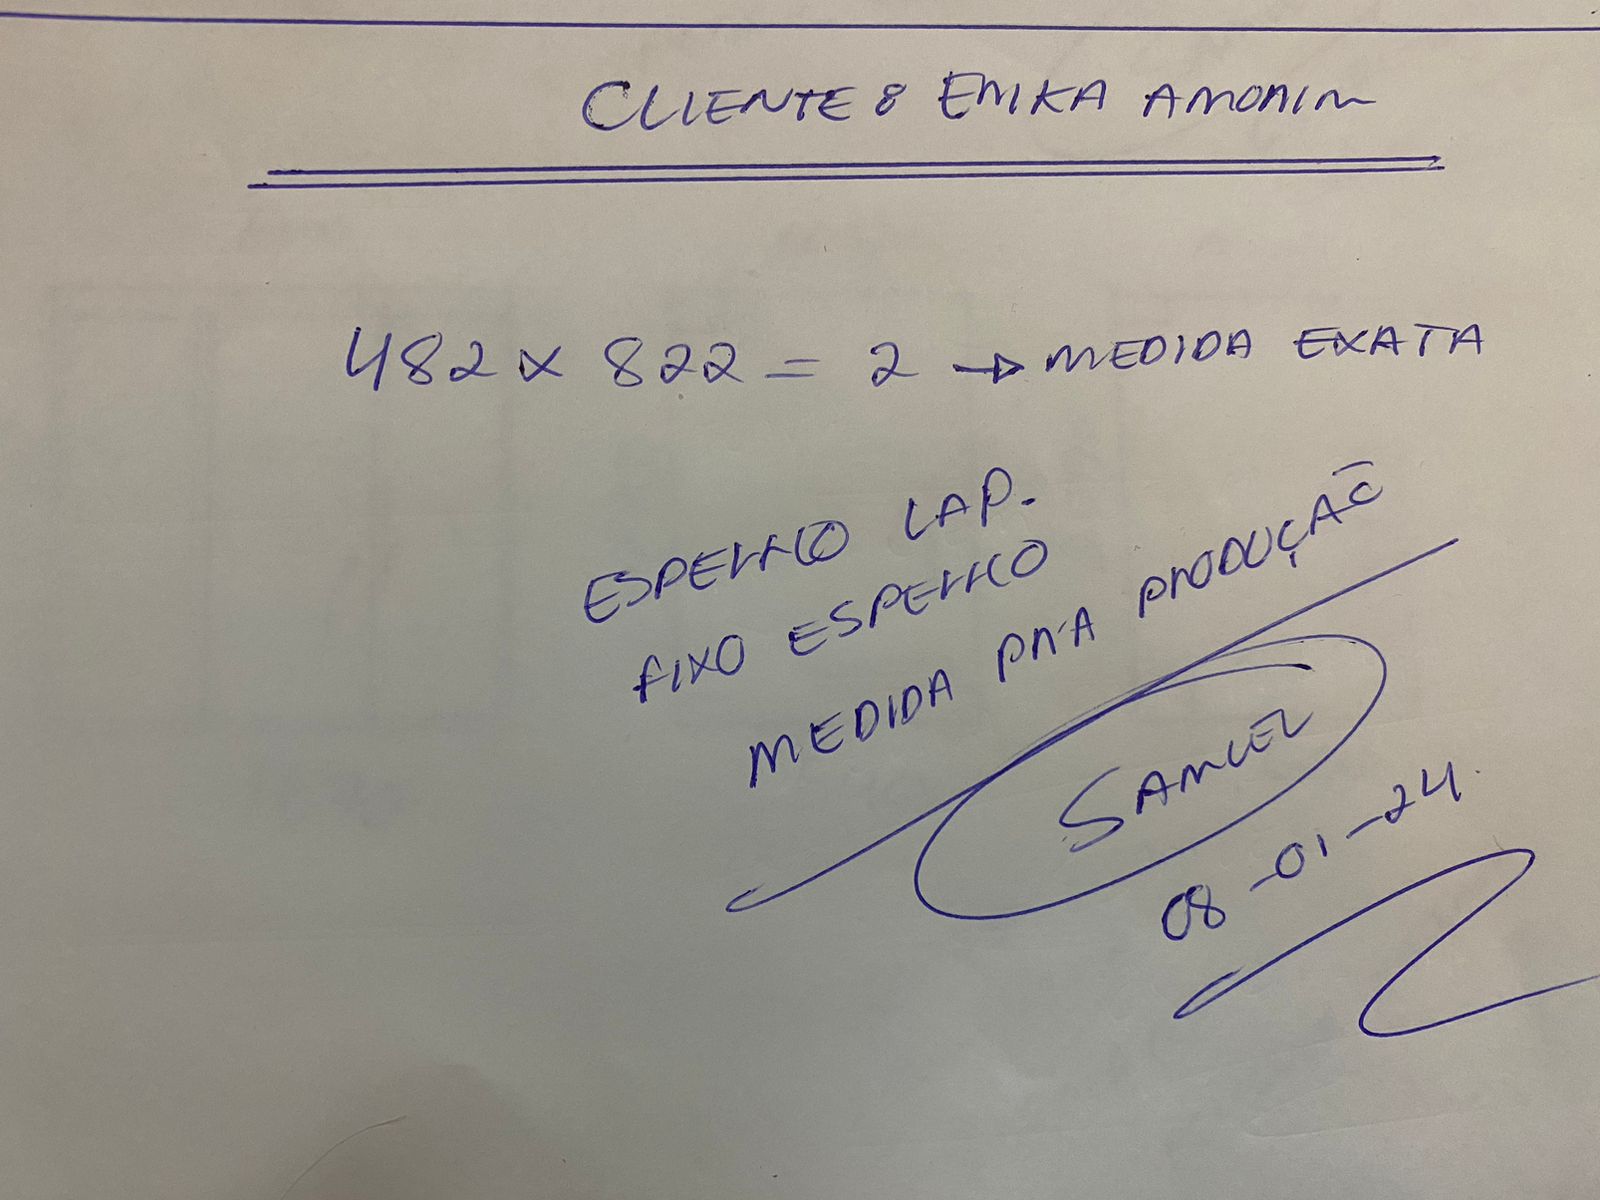 CLIENTE: ERIKA AMORIM
482 x 822 = 2 → MEDIDA EXATA
ESPELHO LAP.
FIXO ESPELHO
MEDIDA PARA PRODUÇÃO
SAMUEL
08-01-24